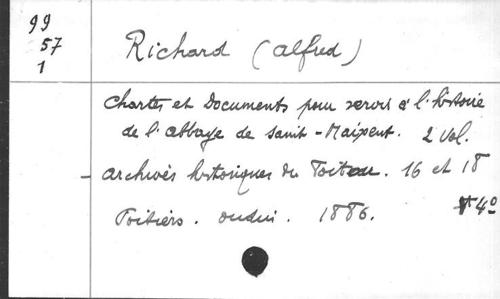 99
57
1
Richard (Alfred)
Chartes et Documents pour servir à l'histoire
de l'abbaye de saint-Maixent. 2 vol.
- archives historiques du Poitou. 16 et 18
Poitiers. oudin. 1886. 4°